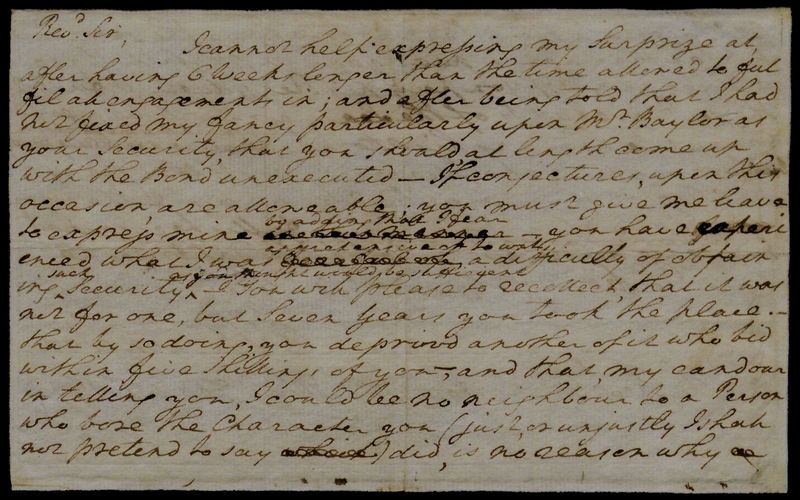 Revd. Sir,
I cannot help expressing my Surprize at,
after having 6 Weeks longer than the time allowed to ful
fil all engagements in; and after being told that I had
not fixed my fancy particularly upon Mr. Baylor as
your Security, that you should at length come up
with the Bond unexecuted — If conjectures, upon this
occasion are allowable; you must give me leave
by adding that I fear
to express mine — you have experi
apprehensive of to wit;
enced what I was a difficulty of obtain
such as you might would be sufficient
ing Security — You will please to recollect, that it was
not for one, but Seven Years you took the place. —
that by so doing, you deprived another of it who bid
within five Shillings of you —, and that, my candour
in telling you, I could be no neighbour to a Person
who bore the Character you (just, or unjustly I shall
not pretend to say) did, is no reason why